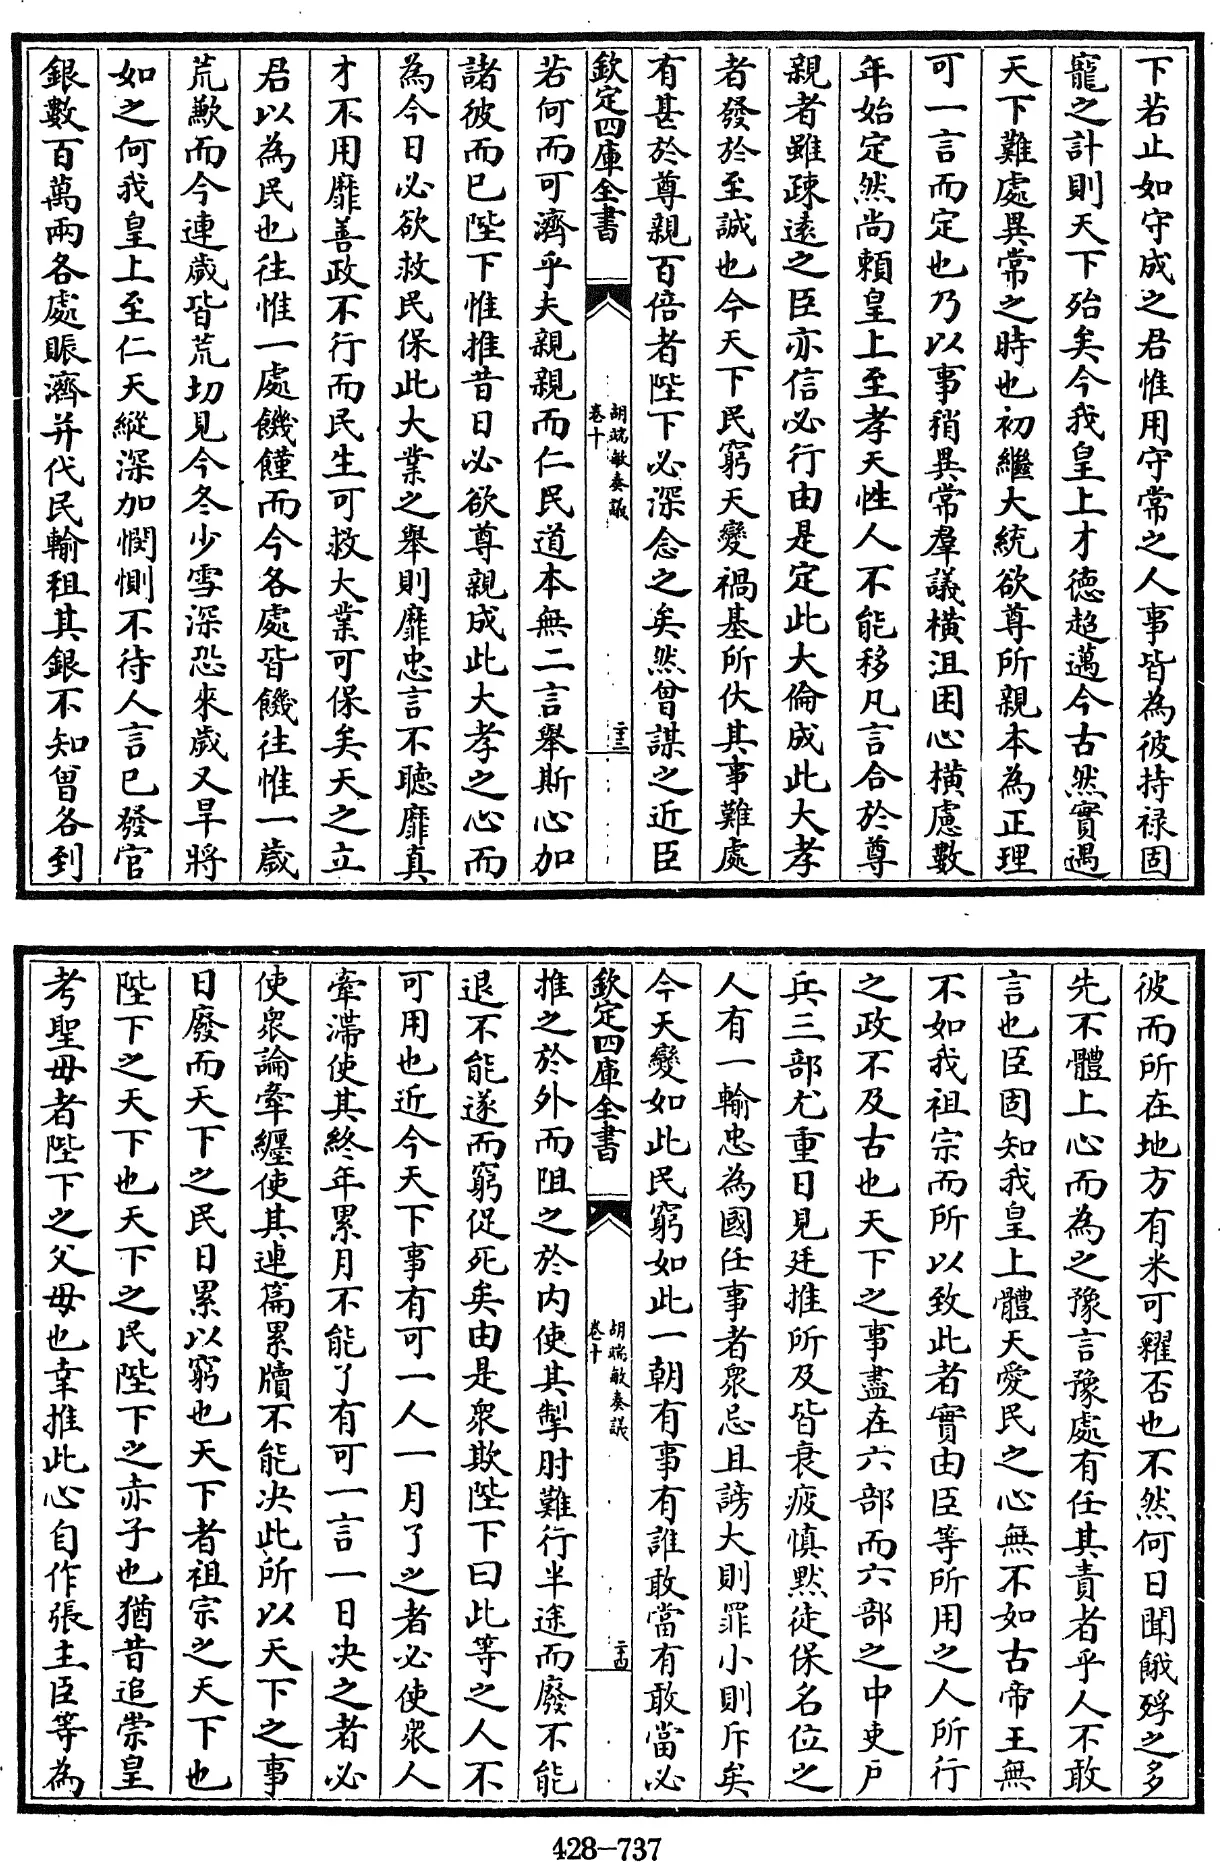 下若止如守成之君惟用守常之人事皆為彼持禄固
寵之計則天下殆矣今我皇上才徳超邁今古然實遇
天下難處異常之時也初繼大統欲尊所親本為正理
可一言而定也乃以事稍異常羣議横沮困心横慮數
年始定然尚賴皇上至孝天性人不能移凡言合於尊
親者雖疎遠之臣亦信必行由是定此大倫成此大孝
者發於至誠也今天下民窮天變禍基所伏其事難處
有甚於尊親百倍者陛下必深念之矣然曾謀之近臣
欽定四庫全書
胡端敏奏議
卷十
二十三
若何而可濟乎夫親親而仁民道本無二言舉斯心加
諸彼而已陛下惟推昔日必欲尊親成此大孝之心而
為今日必欲救民保此大業之舉則靡忠言不聽靡真
才不用靡善政不行而民生可救大業可保矣天之立
君以為民也往惟一處饑饉而今各處皆饑往惟一歲
荒歉而今連歲皆荒切見今冬少雪深恐來歲又旱將
如之何我皇上至仁天縱深加憫惻不待人言已發官
銀數百萬兩各處賑濟并代民輸租其銀不知曾各到
彼而所在地方有米可糴否也不然何日聞餓殍之多
先不體上心而為之豫言豫處有任其責者乎人不敢
言也臣固知我皇上體天愛民之心無不如古帝王無
不如我祖宗而所以致此者實由臣等所用之人所行
之政不及古也天下之事盡在六部而六部之中吏戶
兵三部尤重日見廷推所及皆衰疲慎黙徒保名位之
人有一輸忠為國任事者衆忌且謗大則罪小則斥矣
今天變如此民窮如此一朝有事有誰敢當有敢當必
欽定四庫全書
胡端敏奏議
卷十
二十四
推之於外而阻之於内使其掣肘難行半途而廢不能
退不能遂而窮促死矣由是衆欺陛下曰此等之人不
可用也近今天下事有可一人一月了之者必使衆人
牽滯使其終年累月不能了有可一言一日决之者必
使衆論牽纒使其連篇累牘不能决此所以天下之事
日廢而天下之民日累以窮也天下者祖宗之天下也
陛下之天下也天下之民陛下之赤子也猶昔追崇皇
考聖母者陛下之父母也幸推此心自作張主臣等為
428-737